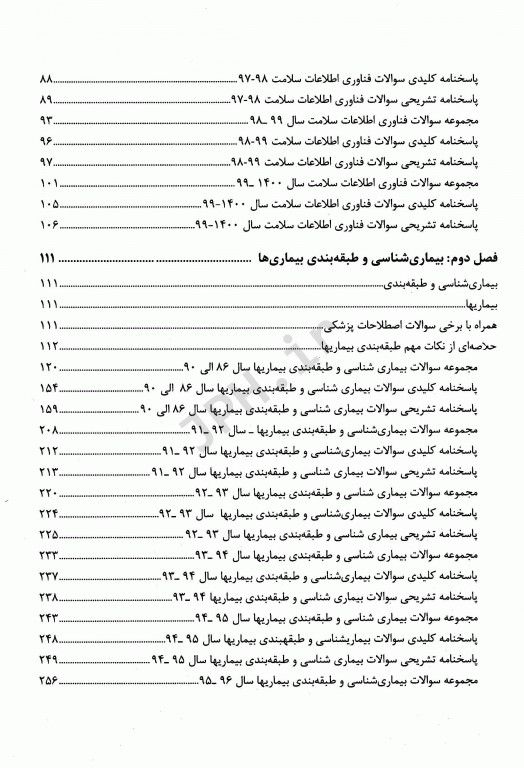 پاسخنامه کلیدی سوالات فناوری اطلاعات سلامت ۹۸-۹۷ ................ ۸۸
پاسخنامه تشریحی سوالات فناوری اطلاعات سلامت ۹۸-۹۷ ................ ۸۹
مجموعه سوالات فناوری اطلاعات سلامت سال ۹۹ ـ ۹۸ ................ ۹۳
پاسخنامه کلیدی سوالات فناوری اطلاعات سلامت ۹۹-۹۸ ................ ۹۶
پاسخنامه تشریحی سوالات فناوری اطلاعات سلامت ۹۹-۹۸ ................ ۹۷
مجموعه سوالات فناوری اطلاعات سلامت سال ۱۴۰۰ ـ ۹۹ ................ ۱۰۱
پاسخنامه کلیدی سوالات فناوری اطلاعات سلامت سال ۱۴۰۰-۹۹ ................ ۱۰۵
پاسخنامه تشریحی سوالات فناوری اطلاعات سلامت سال ۱۴۰۰-۹۹ ................ ۱۰۶
فصل دوم: بیماری‌شناسی و طبقه‌بندی بیماری‌ها ................ ۱۱۱
بیماری‌شناسی و طبقه‌بندی ................ ۱۱۱
بیماریها ................ ۱۱۱
همراه با برخی سوالات اصطلاحات پزشکی ................ ۱۱۱
خلاصه‌ای از نکات مهم طبقه‌بندی بیماریها ................ ۱۱۲
مجموعه سوالات بیماری شناسی و طبقه‌بندی بیماریها سال ۸۶ الی ۹۰ ................ ۱۲۰
پاسخنامه کلیدی سوالات بیماری شناسی و طبقه‌بندی بیماریها سال ۸۶ الی ۹۰ ................ ۱۵۴
پاسخنامه تشریحی سوالات بیماری شناسی و طبقه‌بندی بیماریها سال ۸۶ الی ۹۰ ................ ۱۵۹
مجموعه سوالات بیماری‌شناسی و طبقه‌بندی بیماریها ـ سال ۹۲ ـ۹۱ ................ ۲۰۸
پاسخنامه کلیدی سوالات بیماری‌شناسی و طبقه‌بندی بیماریها سال ۹۲ ـ۹۱ ................ ۲۱۲
پاسخنامه تشریحی سوالات بیماری شناسی و طبقه‌بندی بیماریها سال ۹۲ ـ۹۱ ................ ۲۱۳
مجموعه سوالات بیماری شناسی و طبقه‌بندی بیماریها سال ۹۳ ـ۹۲ ................ ۲۲۰
پاسخنامه کلیدی سوالات بیماری‌شناسی و طبقه‌بندی بیماریها سال ۹۳ ـ۹۲ ................ ۲۲۴
پاسخنامه تشریحی سوالات بیماری شناسی و طبقه‌بندی بیماریها سال ۹۳ ـ۹۲ ................ ۲۲۵
مجموعه سوالات بیماری شناسی و طبقه‌بندی بیماریها سال ۹۴ ـ۹۳ ................ ۲۳۳
پاسخنامه کلیدی سوالات بیماری‌شناسی و طبقه‌بندی بیماریها سال ۹۴ ـ۹۳ ................ ۲۳۷
پاسخنامه تشریحی سوالات بیماری شناسی و طبقه‌بندی بیماریها ۹۴ ـ۹۳ ................ ۲۳۸
مجموعه سوالات بیماری شناسی و طبقه‌بندی بیماریها سال ۹۵ ـ۹۴ ................ ۲۴۳
پاسخنامه کلیدی سوالات بیماریشناسی و طبقهبندی بیماریها سال ۹۵ ـ۹۴ ................ ۲۴۸
پاسخنامه تشریحی سوالات بیماری شناسی و طبقه‌بندی بیماریها سال ۹۵ ـ۹۴ ................ ۲۴۹
مجموعه سوالات بیماری‌شناسی و طبقه‌بندی بیماریها سال ۹۶ ـ۹۵ ................ ۲۵۶
JPH.ir